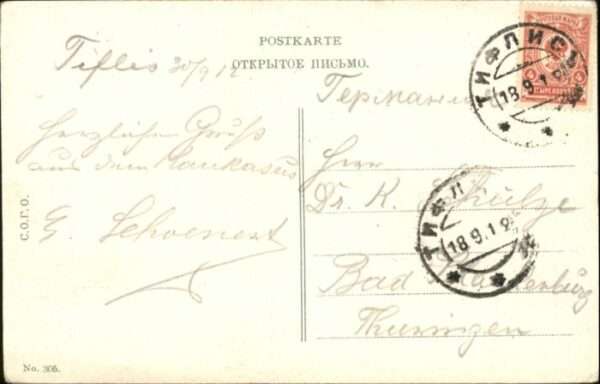 POSTKARTE
ОТКРЫТОЕ ПИСЬМО.
Tiflis 30/9 12
Herzlichen Gruß
aus dem Kaukasus
E. Schoenert
С.О.Г.О.
No. 305.
ТИФЛИСЪ
18.9.12
Германія
Herrn
Dr. K. Schulze
ТИФЛ
18.9.12
Bad Blankenburg
Thuringen